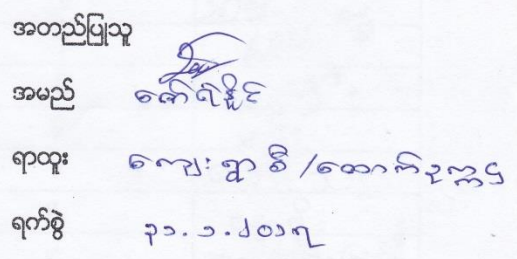 အတည်ပြုသူ
အမည် ဇော်ရဲနိုင်
ရာထူး ကျေးရွာ စီ/ထောက်ဥက္ကဌ
ရက်စွဲ ၃၁.၁.၂၀၁၇